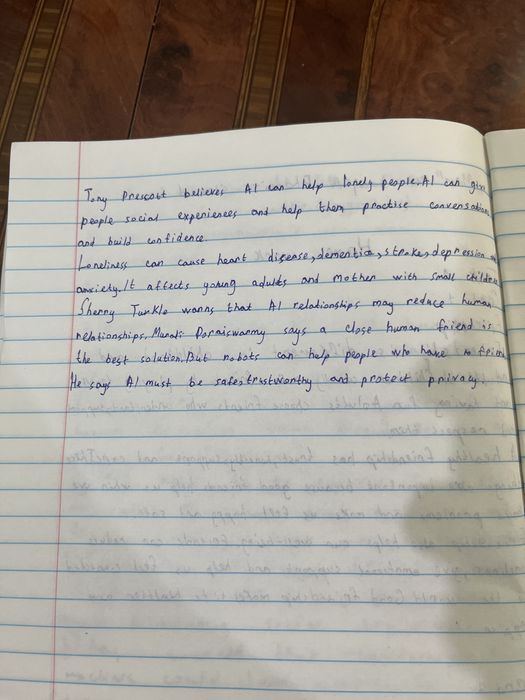 Tony Prescott believes AI can help lonely people. AI can give
people social experiences and help them practise conversations
and build confidence.
Loneliness can cause heart disease, dementia, stroke, depression
anxiety. It affects young adults and mother with small children
Sherry Turkle warns that AI relationships may reduce human
relationships. Murali Doraiswamy says a close human friend is
the best solution. But robots can help people who have no friends
He says AI must be safe, trustworthy and protect privacy.